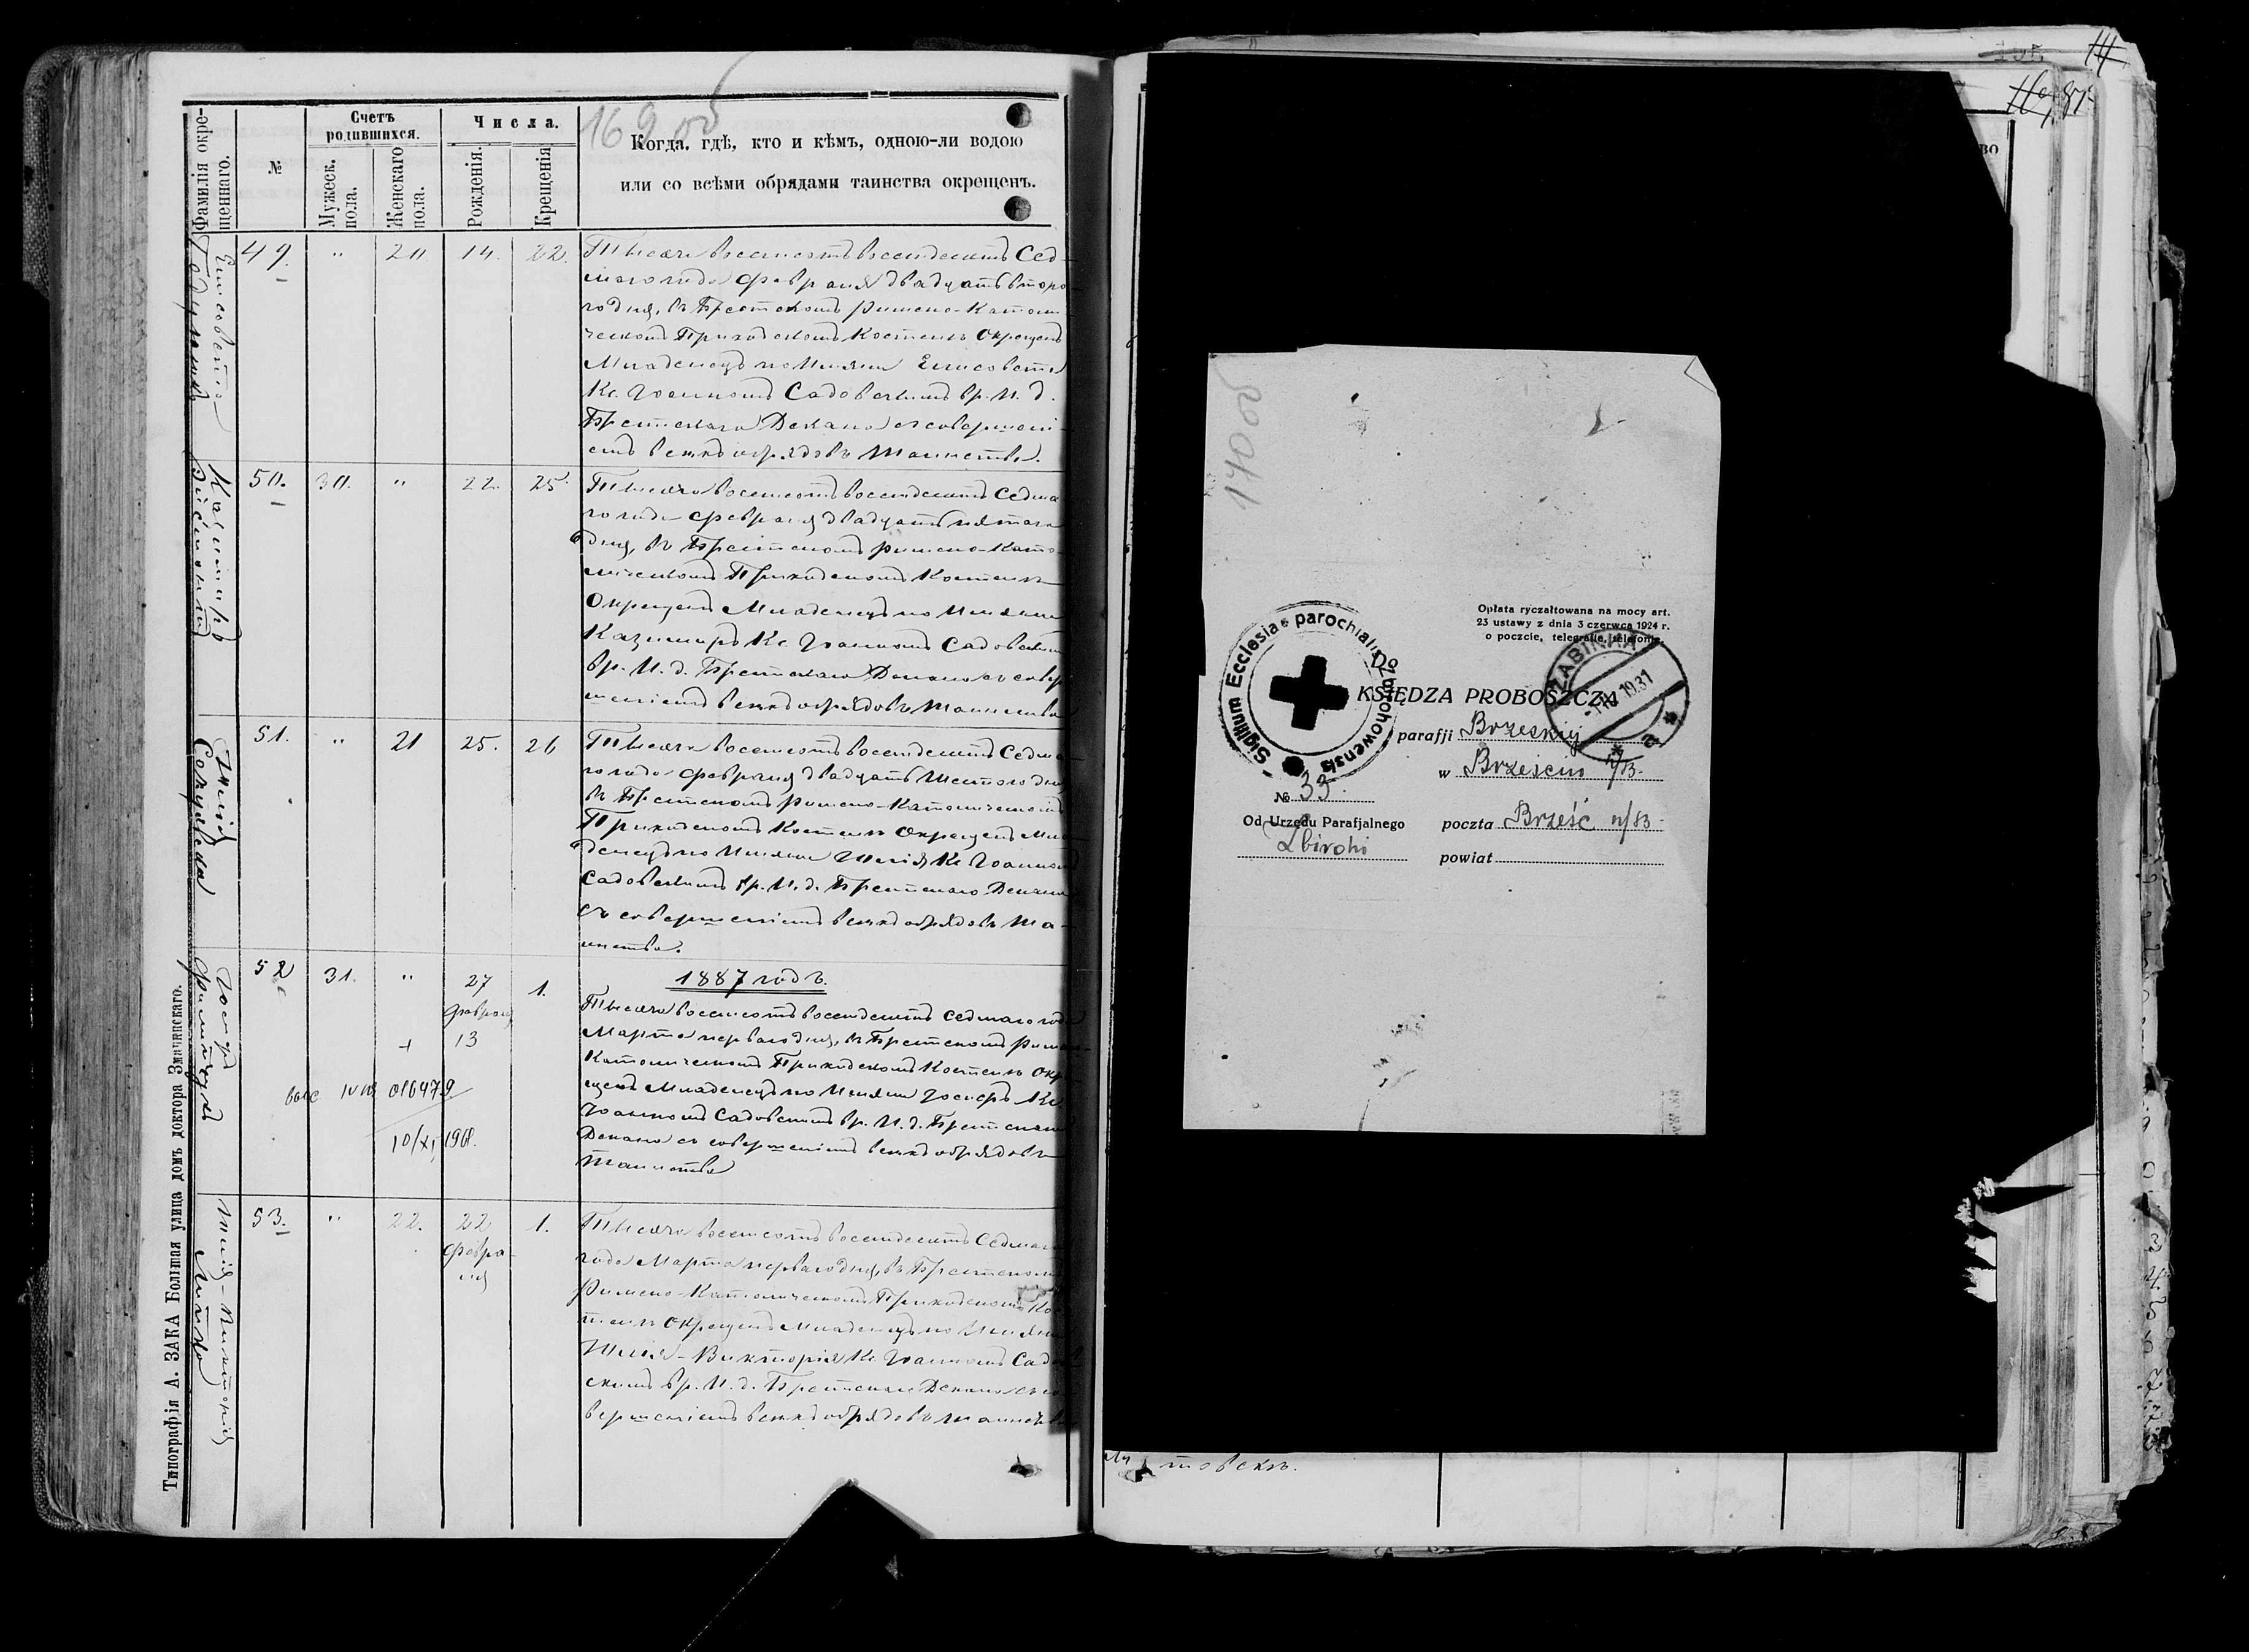 169 об
Фамилія окре-
щеннаго.
№
Счетъ
родившихся.
Мужеск.
пола.
Женскаго
пола.
Числа.
Рожденія.
Крещенія
Когда. гдѣ, кто и кѣмъ, одною-ли водою
или со всѣми обрядами таинства окрещенъ.
Елисовета
49. " 20 14. 22.
Тысяча восемсотъ восемдесятъ Сед-
маго года Февраля двадцать второ
го дня, въ Брестскомъ Римско-Катол
ческомъ Приходскомъ Костелѣ Окрещенъ
Младенецъ по Имяни Елисовета
Кс. Іоанномъ Садовскимъ вр. И. д.
Брестскаго Декана съ совершені-
емъ всѣхъ обрядовъ Таинства.
Казимиръ
50. 30. " 22. 25.
Тысяча восемсотъ восемдесятъ Седма
го года Февраля двадцать пятаго
дня, въ Брестскомъ Римско-Като-
лическомъ Приходскомъ Костелѣ
Окрещенъ Младенецъ по Имяни
Казимиръ Кс. Іоанномъ Садовским
вр. И. д. Брестскаго Декана съ совер
шеніемъ всѣхъ обрядовъ Таинства
Юлія
51. " 21 25. 26
Тысяча восемсотъ восемдесятъ Седма-
го года Февраля двадцать Шестого дня
въ Брестскомъ Римско-Католическомъ
Приходскомъ Костелѣ Окрещенъ Мла
денецъ по Имяни Юлія Кс. Іоанномъ
Садовскимъ вр. И. д. Брестскаго Декана
съ совершеніемъ всѣхъ обрядовъ Та-
инства.
Іосифъ
52 31. " 27 1.
Февраля
13
016479
10/XI 1968.
1887 годъ.
Тысяча восемсотъ восемдесятъ Седмаго года
Марта перваго дня, въ Брестскомъ Римско-
Католическомъ Приходскомъ Костелѣ Окр
щенъ Младенецъ по Имяни Іосифъ Кс.
Іоанномъ Садовскимъ вр. И. д. Брестскаго
Декана съ совершеніемъ всѣхъ обрядовъ
Таинства
Юлія-Викторія
53. " 22. 22 1.
Февра-
ля
Тысяча восемсотъ восемдесятъ Седмаго
года Марта перваго дня, въ Брестском
Римско-Католическомъ Приходскомъ Кос
телѣ Окрещенъ Младенецъ по Имяни
Юлія-Викторія Кс. Іоанномъ Садов
скимъ вр. И. д. Брестскаго Декана съ со
вершеніемъ всѣхъ обрядовъ Таинства
Типографія А. ЗАКА Большая улица домъ доктора Змачинскаго.
170 об
Opłata ryczałtowana na mocy art.
23 ustawy z dnia 3 czerwca 1924 r.
o poczcie, telegrafie, telefonie.
Sigillum Ecclesiae parochialis Zbirohowensis
ŻABINKA
1931
a
Do
KSIĘDZA PROBOSZCZA
parafji Brzeskiej
w Brześciu n/B.
№ 33.
Od Urzędu Parafjalnego
Zbirohi
poczta Brześć n/B
powiat
товскъ.